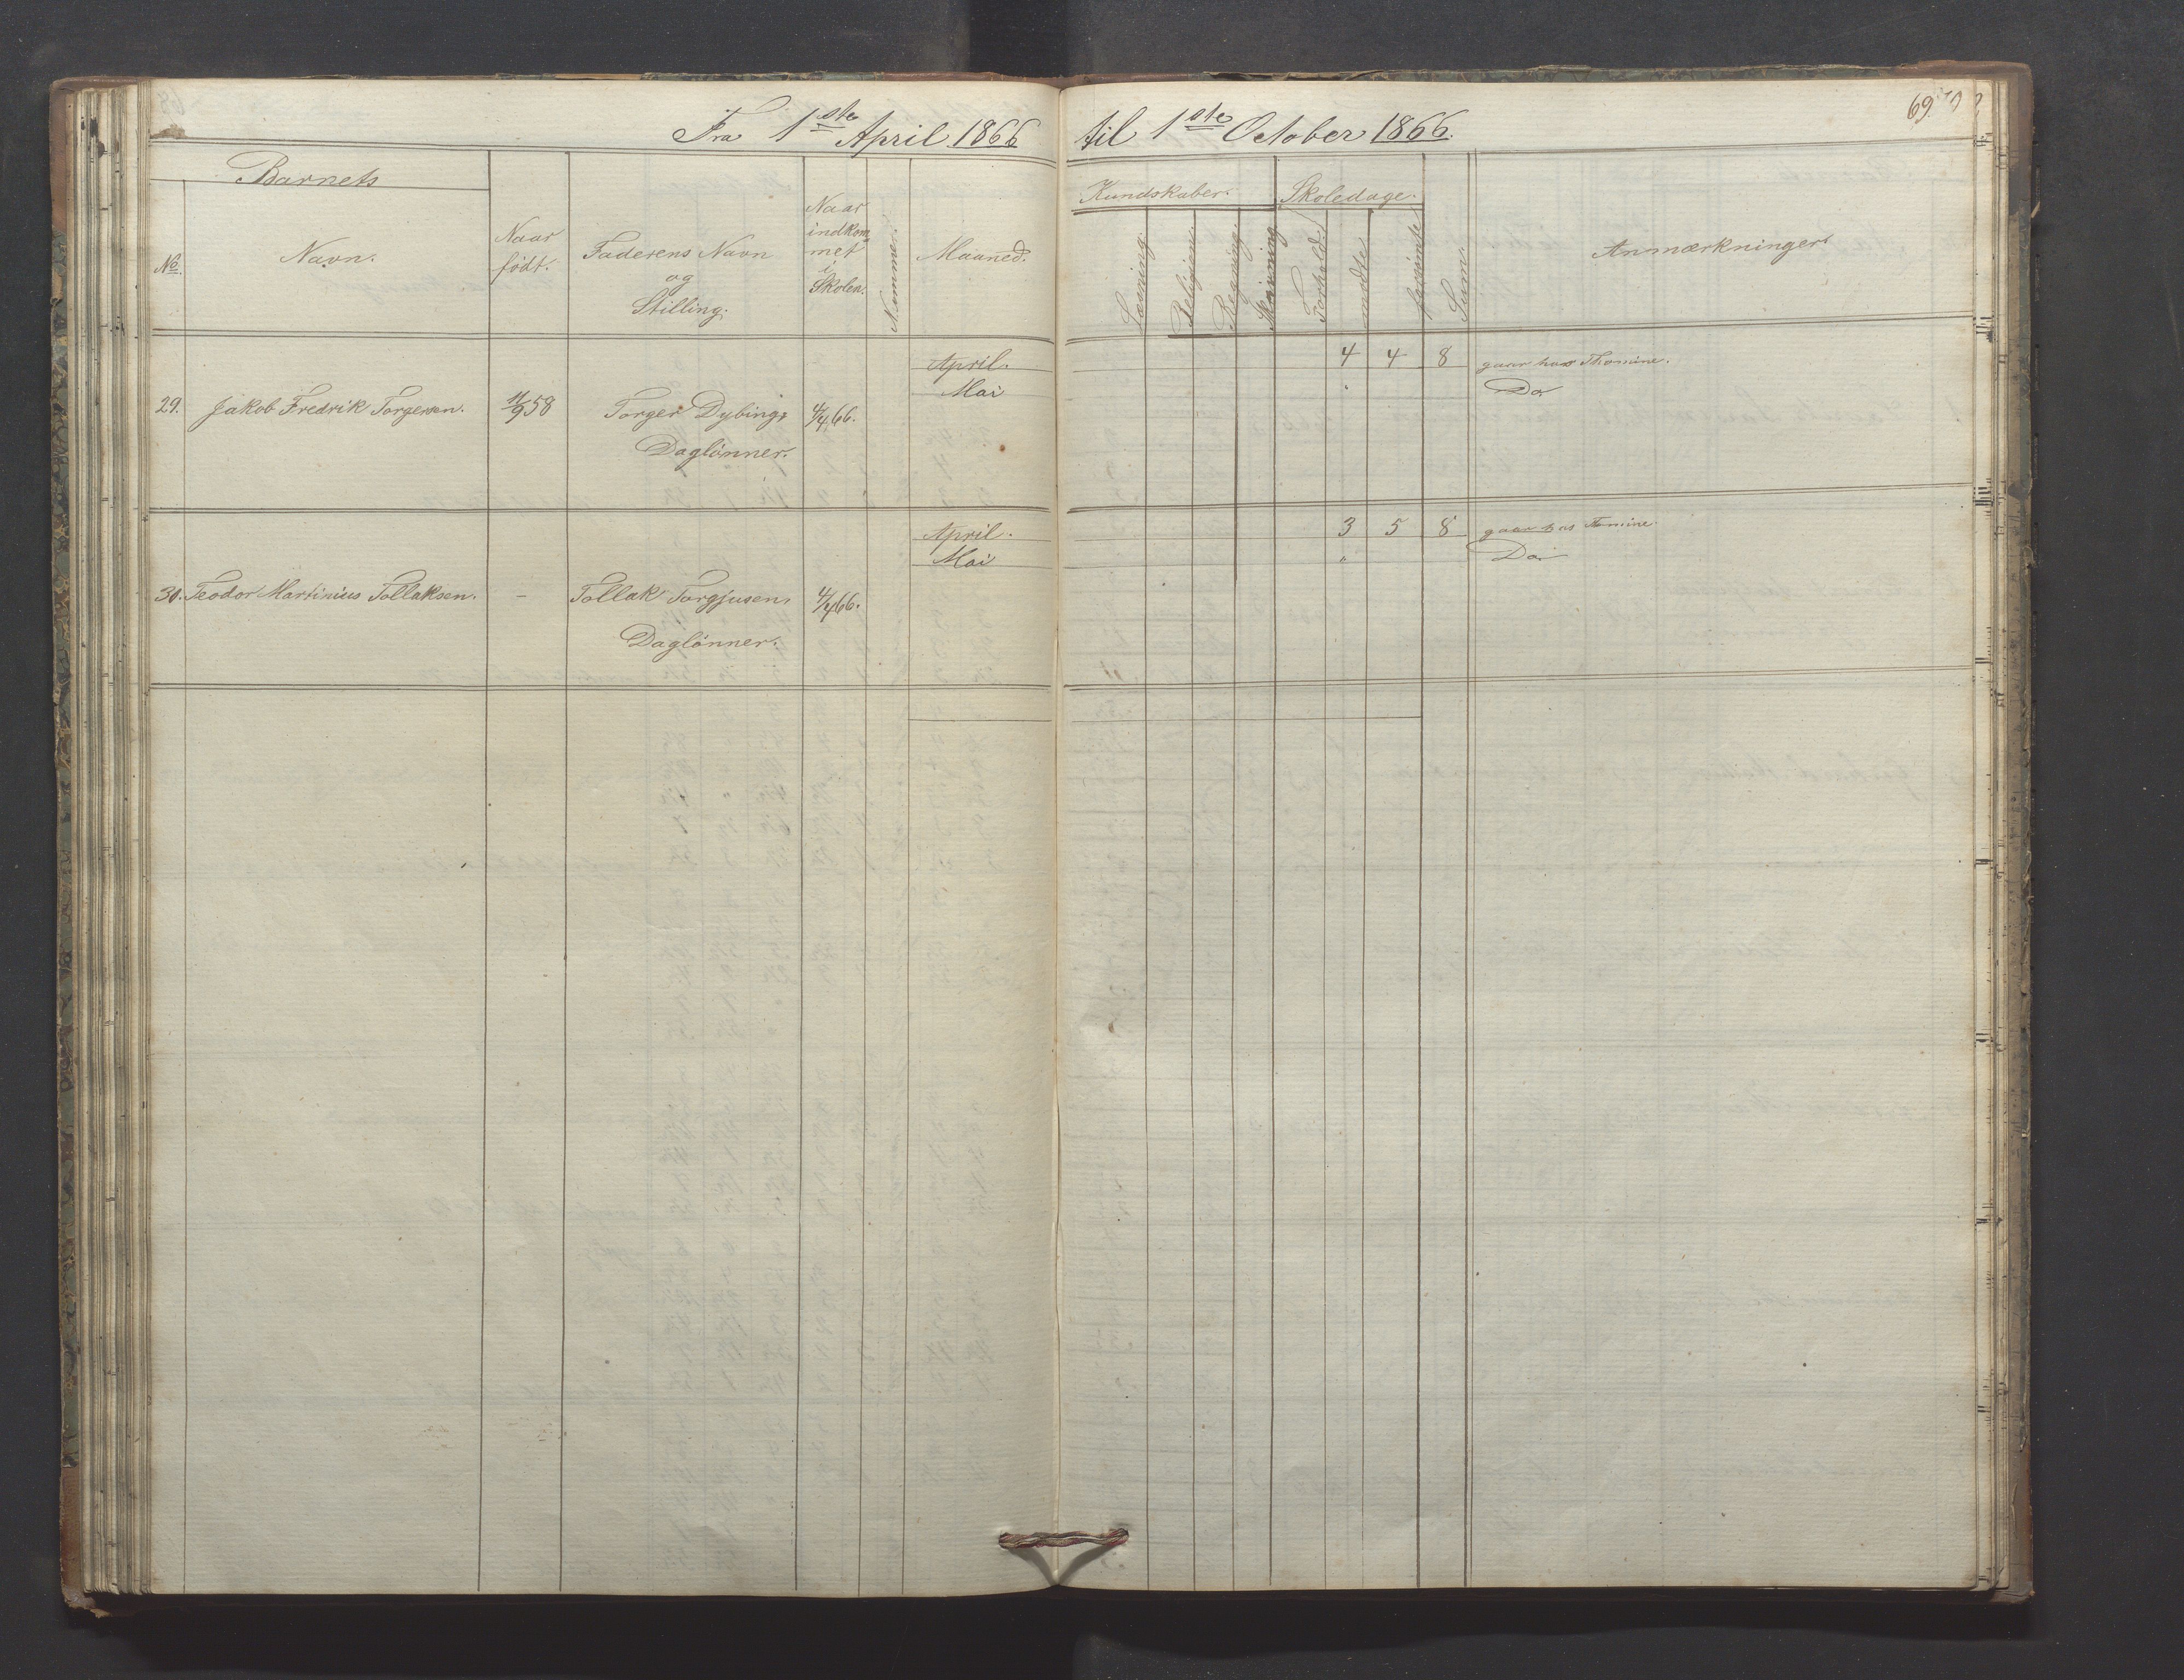 69
Fra 1ste April 1866 til 1ste October 1866.
Barnets
Kundskaber. Skoledage.
No. Navn. Naar født. Faderens Navn og Stilling. Naar indkommet i Skolen. Nummer. Maaned. Læsning. Religion. Regning. Skrivning Forhold. mødte forsømte Sum. Anmærkninger.
April. 4 4 8 gaar hos Thomine.
Mai " Do
29. Jakob Fredrik Torgersen. 11/9 58 Torger Dybing, 4/4 66.
Daglönner.
April. 3 5 8 gaar hos Tomine
Mai " Do
30. Teodor Martinius Tollaksen. - Tollak Torgjusen, 4/4 66.
Daglönner.